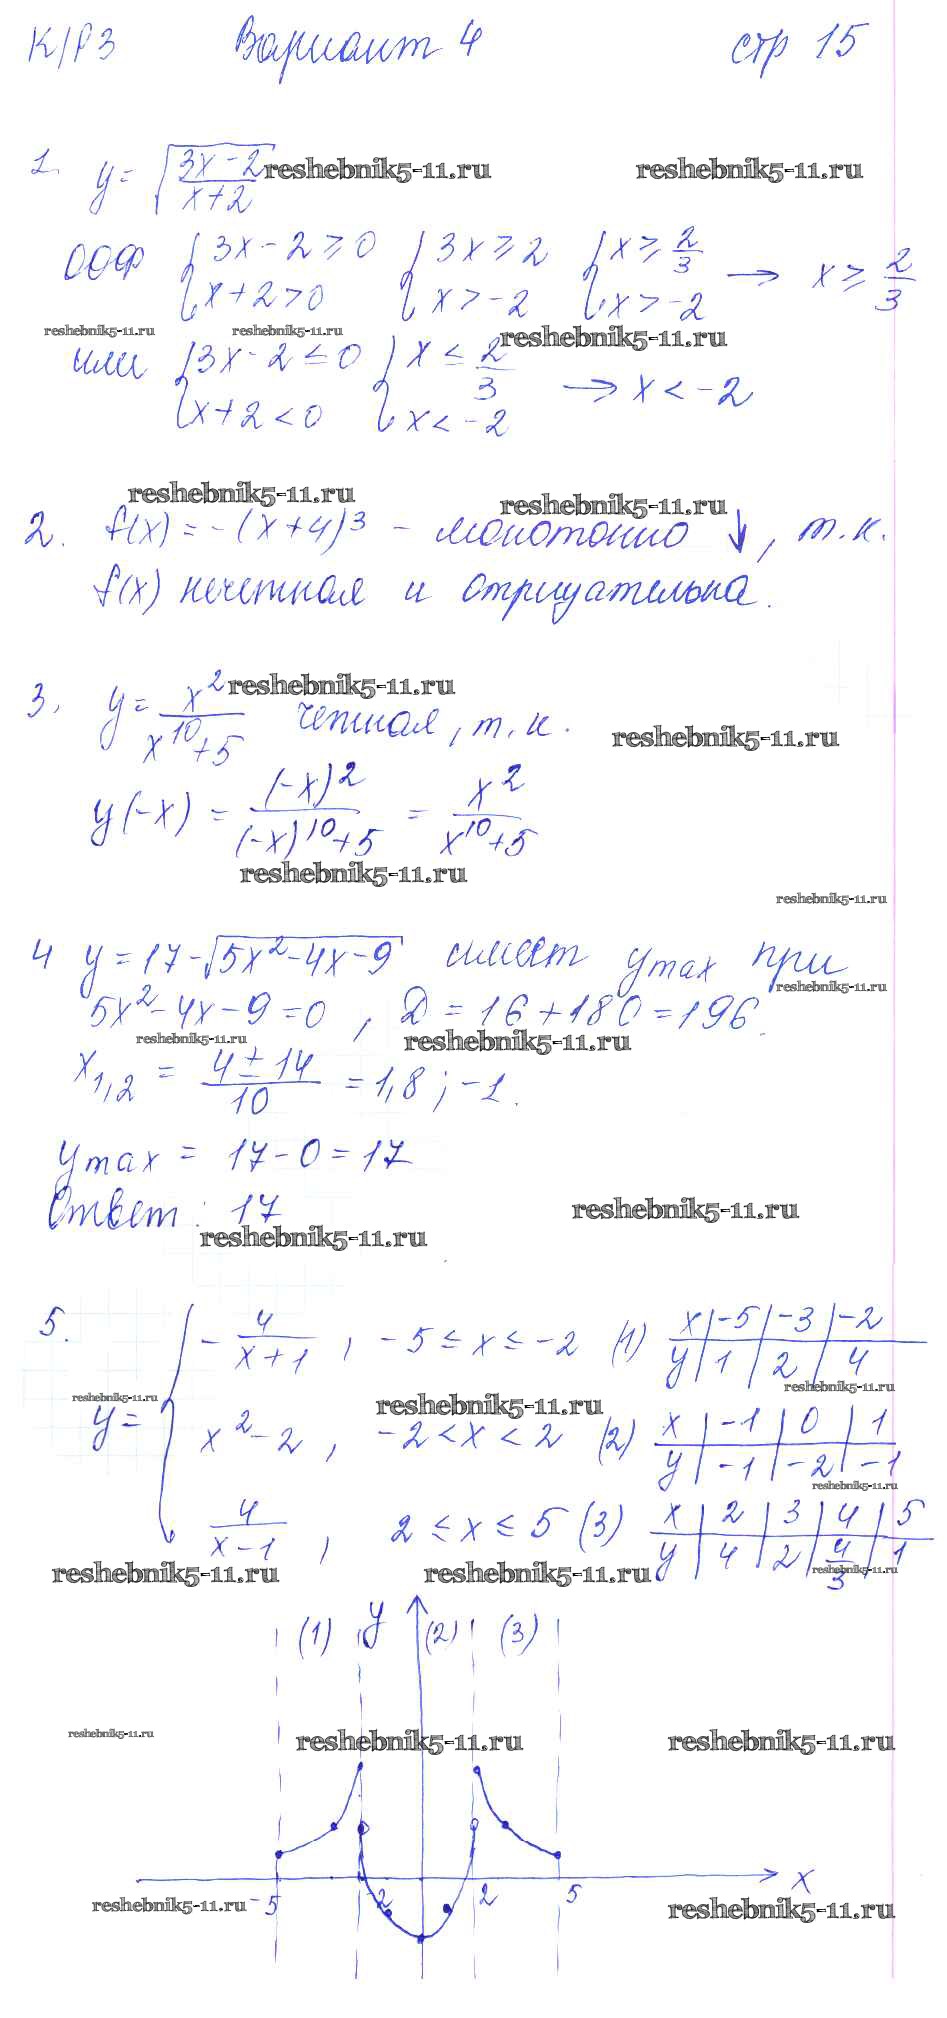 К/Р3 Вариант 4 стр 15
1. y = √((3x-2)/(x+2)) reshebnik5-11.ru reshebnik5-11.ru
ООФ {3x-2≥0 {3x≥2 {x≥2/3
{x+2>0 {x>-2 {x>-2 → x≥2/3
reshebnik5-11.ru reshebnik5-11.ru reshebnik5-11.ru
или {3x-2≤0 {x≤2/3
{x+2<0 {x<-2 → x<-2
reshebnik5-11.ru reshebnik5-11.ru
2. f(x)=-(x+4)³ - монотонно ↓, т.к.
f(x) нечетная и отрицательна.
3. y = x²/(x¹⁰+5) четная, т.к. reshebnik5-11.ru
reshebnik5-11.ru
y(-x) = (-x)²/((-x)¹⁰+5) = x²/(x¹⁰+5)
reshebnik5-11.ru
reshebnik5-11.ru
4 y=17-√(5x²-4x-9) имеет ymax при
reshebnik5-11.ru
5x²-4x-9=0, D=16+180=196.
reshebnik5-11.ru reshebnik5-11.ru
x1,2 = (4±14)/10 = 1,8; -1.
ymax = 17-0=17
Ответ: 17 reshebnik5-11.ru
reshebnik5-11.ru
5. y= { -4/(x+1), -5≤x≤-2 (1) x|-5|-3|-2
y|1|2|4
reshebnik5-11.ru reshebnik5-11.ru reshebnik5-11.ru
x²-2, -2<x<2 (2) x|-1|0|1
y|-1|-2|-1
reshebnik5-11.ru
4/(x-1), 2≤x≤5 (3) x|2|3|4|5
y|4|2|4/3|1
reshebnik5-11.ru reshebnik5-11.ru reshebnik5-11.ru
(1) y (2) (3)
reshebnik5-11.ru reshebnik5-11.ru reshebnik5-11.ru
x
reshebnik5-11.ru -5 -2 2 5 reshebnik5-11.ru